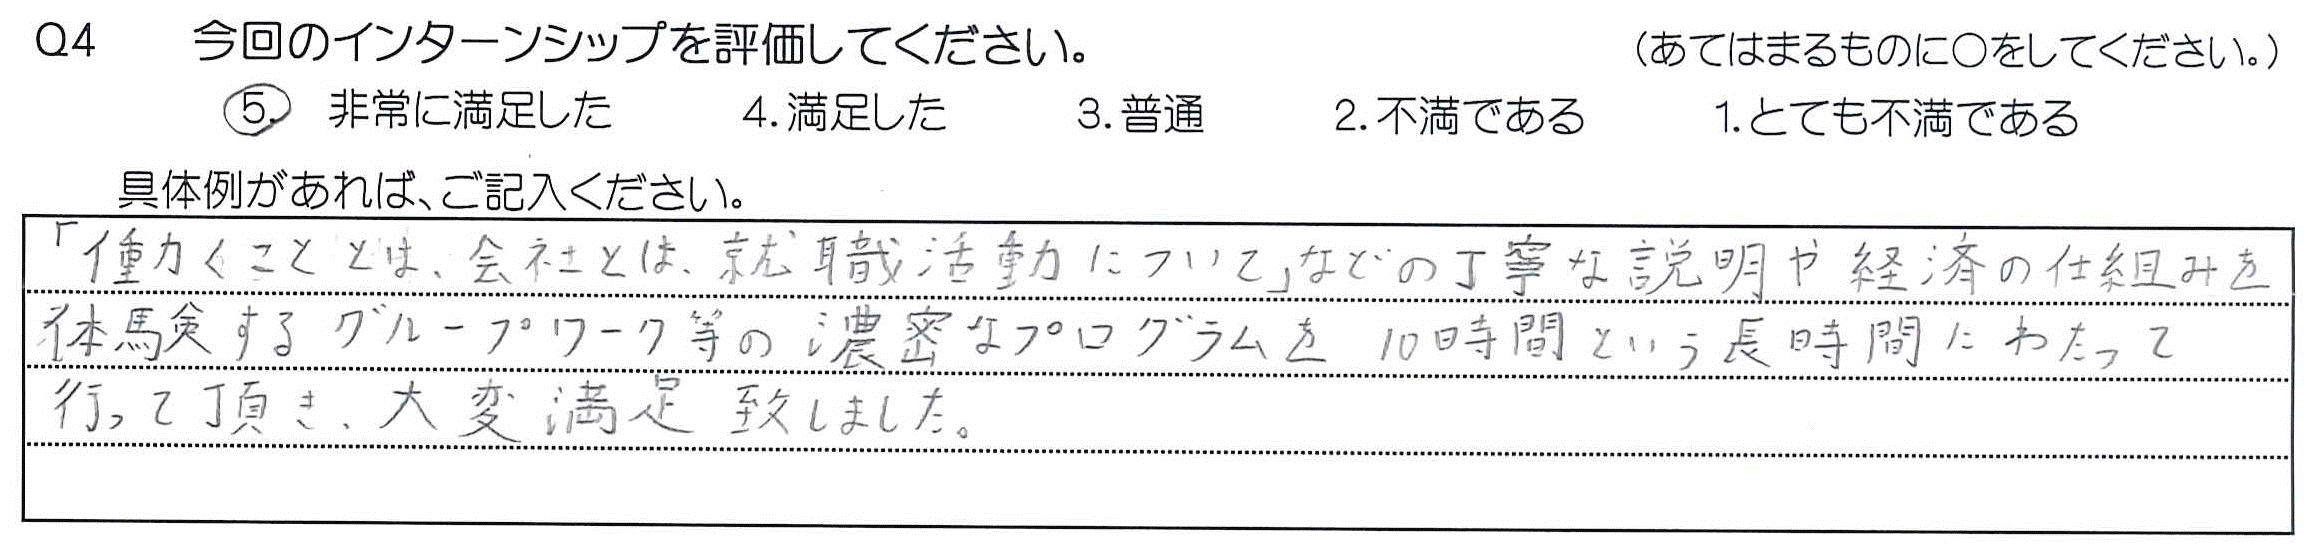 Q4 今回のインターンシップを評価してください。 (あてはまるものに○をしてください。)
5. 非常に満足した 4.満足した 3.普通 2.不満である 1.とても不満である
具体例があれば、ご記入ください。
「働くこととは、会社とは、就職活動について」などの丁寧な説明や経済の仕組みを
体験するグループワーク等の濃密なプログラムを10時間という長時間にわたって
行って頂き、大変満足致しました。